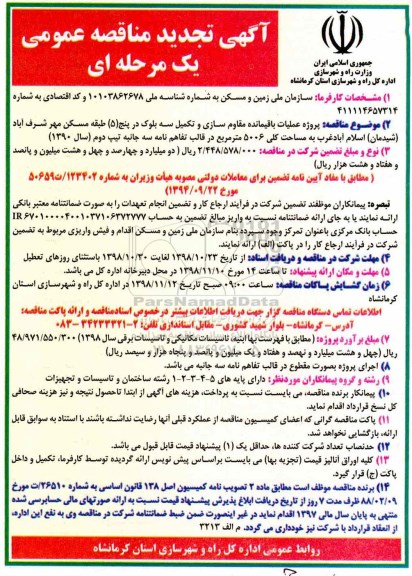 آگهی تجدید مناقصه عمومی
یک مرحله ای
جمهوری اسلامی ایران
وزارت راه و شهرسازی
اداره کل راه و شهرسازی استان کرمانشاه
۱) مشخصات کارفرما: سازمان ملی زمین و مسکن به شماره شناسه ملی ۱۰۱۰۳۸۶۲۶۷۸ و کد اقتصادی به شماره
۴۱۱۱۱۴۶۵۷۳۱۴
۲) موضوع مناقصه: پروژه عملیات باقیمانده مقاوم سازی و تکمیل سه بلوک در پنج(۵) طبقه مسکن مهر شرف آباد
(شیدمان) اسلام آبادغرب به مساحت کلی ۵۰۰۶ مترمربع در قالب تفاهم نامه سه جانبه تیپ دوم (سال ۱۳۹۰)
۳) نوع و مبلغ تضمین شرکت در مناقصه: ۲/۴۴۸/۵۷۸/۰۰۰ ریال (دو میلیارد و چهارصد و چهل و هشت میلیون و پانصد
و هفتاد و هشت هزار ریال)
(مطابق با مفاد آیین نامه تضمین برای معاملات دولتی مصوبه هیأت وزیران به شماره ۱۲۳۴۰۲/ت۵۰۶۵۹
مورخ ۱۳۹۴/۰۹/۲۲)
تبصره: پیمانکاران موظفند تضمین شرکت در فرآیند ارجاع کار و تضمین انجام تعهدات را به صورت ضمانتنامه معتبر بانکی
ارائه نمایند یا به جای ارائه ضمانتنامه نسبت به واریز مبالغ تضمین به حساب IR ۶۷۰۱۰۰۰۰۴۰۰۱۰۳۷۱۰۶۳۷۲۷۷۷
حساب بانک مرکزی باعنوان تمرکز وجوه سپرده بنام سازمان ملی زمین و مسکن اقدام و فیش واریزی مربوط به تضمین
شرکت در فرآیند ارجاع کار را در پاکت (الف) ارائه نمایند.
۴) مهلت شرکت در مناقصه و دریافت اسناد: از تاریخ ۱۳۹۸/۱۰/۲۳ لغایت ۱۳۹۸/۱۰/۳۰ باستثنای روزهای تعطیل
۵) مهلت و مکان ارائه پیشنهاد: تا ساعت ۱۴ مورخ ۱۳۹۸/۱۱/۱۰ در محل دبیرخانه اداره کل می باشد.
۶) زمان گشایش پاکات مناقصه: ساعت ۰۹:۰۰ صبح تاریخ ۱۳۹۸/۱۱/۱۲ در اداره کل راه و شهرسازی استان
کرمانشاه
اطلاعات تماس دستگاه مناقصه گزار جهت دریافت اطلاعات بیشتر در خصوص اسناد مناقصه و ارائه پاکت مناقصه:
آدرس- کرمانشاه- بلوار شهید کشوری- مقابل استانداری تلفن: ۲-۳۴۲۳۳۳۲۱-۰۸۳
۷) مبلغ برآورد پروژه: (مطابق با فهرست بها ابنیه، تاسیسات مکانیکی و تاسیسات برقی سال ۱۳۹۸) ۴۸/۹۷۱/۵۵۰/۳۰۰
ریال (چهل و هشت میلیارد و نهصد و هفتاد و یک میلیون و پانصد و پنجاه هزار و سیصد ریال)
۸) اجرای پروژه بصورت مقطوع در قالب تفاهم نامه سه جانبه می باشد.
۹) رشته و گروه پیمانکاران موردنظر: دارای پایه های ۵-۴-۳-۲-۱ رشته ساختمان و تاسیسات و تجهیزات
۱۰) پیمانکار برنده مناقصه، می بایست نسبت به پرداخت، هزینه های آگهی از ابتدا تاحصول نتیجه و نیز هزینه صحافی
کل نسخ قرارداد اقدام نماید.
۱۱) پاکت مناقصه گرانی که اعضای کمیسیون مناقصه از عملکرد قبلی آنها رضایت نداشته باشند با استناد به سوابق قابل
ارائه، بازگشایی نخواهد شد.
۱۲) حدنصاب تعداد شرکت کننده ها، حداقل یک (۱) پیشنهاد قیمت قابل قبول می باشد.
۱۳) کلیه اوراق آنالیز قیمت (تجزیه بها) می بایست براساس پیش نویس ارائه گردیده توسط کارفرما، تکمیل و داخل
پاکت (ج) قرار گیرد.
۱۴) برنده مناقصه موظف است مطابق ماده ۲ تصویب نامه کمیسیون اصل ۱۳۸ قانون اساسی به شماره ۲۶۵۱۰/ت مورخ
۸۸/۰۲/۰۹ ظرف مدت ۷ روز از تاریخ دریافت ابلاغ پذیرش پیشنهاد قیمت نسبت به ارائه صورتهای مالی حسابرسی شده
منتهی به پایان سال مالی ۱۳۹۷ اقدام نماید در غیر اینصورت ضمن ضبط ضمانتنامه شرکت در مناقصه وی به نفع این اداره،
از انعقاد قرارداد با شرکت نیز خودداری می گردد. م الف ۳۲۱۳
روابط عمومی اداره کل راه و شهرسازی استان کرمانشاه
ParsNamadData